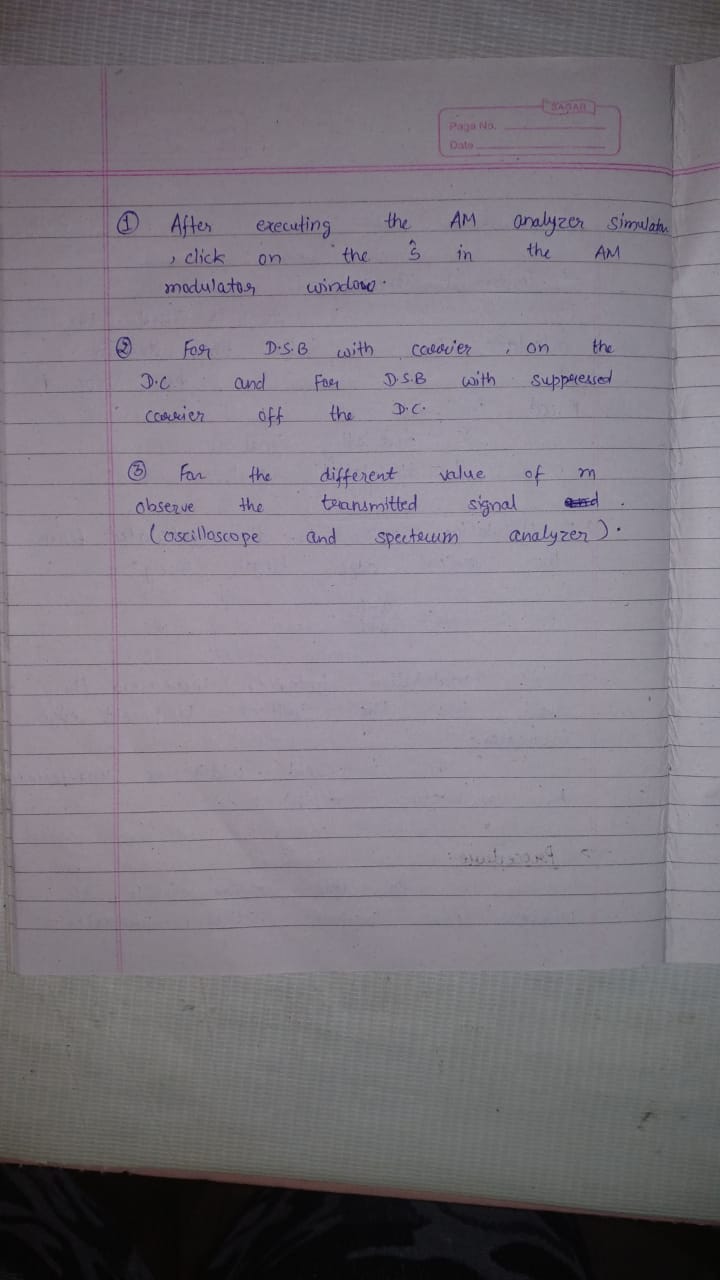 SAGAR
Page No.
Date
① After executing the AM analyzer simulator
, click on the ŝ in the AM
modulator window.
② For D.S.B with carrier, on the
D.C and For D.S.B with suppressed
carrier off the D.C.
③ For the different value of m
observe the transmitted signal and .
(oscilloscope and spectrum analyzer).
> Procedure: